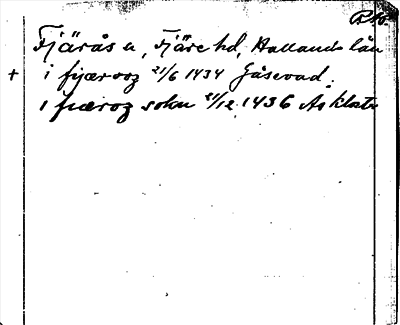 Fjärås sn, Fjäre hd, Hallands län
+ i fiæroos 21/6 1434 Gåsevad.
i fiæroz sokn 21/12 1436 Ås kloster